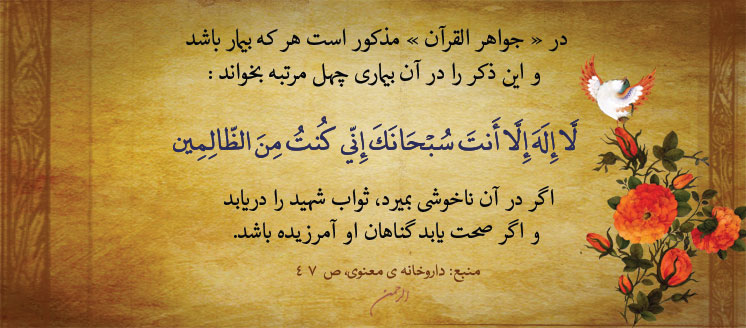 در « جواهر القرآن » مذکور است هر که بیمار باشد
و این ذکر را در آن بیماری چهل مرتبه بخواند :
لَّا إِلَهَ إِلَّا أَنتَ سُبْحَانَكَ إِنِّي كُنتُ مِنَ الظَّالِمِين
اگر در آن ناخوشی بمیرد، ثواب شهید را دریابد
و اگر صحت یابد گناهان او آمرزیده باشد.
منبع: داروخانه ی معنوی، ص ٤٧
الرحمن